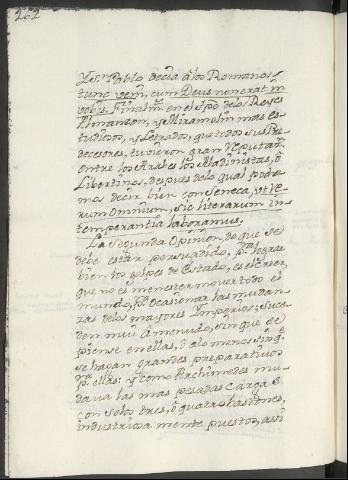 202
y Sn. Pablo decia â los Romanos
tunc veni, cum Deus non erat in
vobis. Finalmte. en el tpõ de los Reyes
Almanzon, y Miramolin mas es-
tudiosos, y Letrados, que todos sus Pre-
decesores, tuvieron gran
entre los Arabes los Aladinistas, ô
Libertinos, despues de lo qual pode-
mos decir bien con Seneca, ut re-
rum omnium, sic literarum in-
temperantia laboramus.
La Segunda Opinion, de que se
debe estàr persuadido, pa. lograr
bien los golpes de Estado, es el creer,
que no es menester mover todo el
mundo, pa. ocasionar las mudan-
zas de los mayores Imperios; Suce-
den mui â menudo, sin que se
piense en ellas, ô a lo menos sin q.e
se hagan grandes preparativos
pa. ellas: y como Archimedes mu-
daba las mas pesadas cargas
con solos tres, ô quatro bastones,
industriosamente puestos, assi